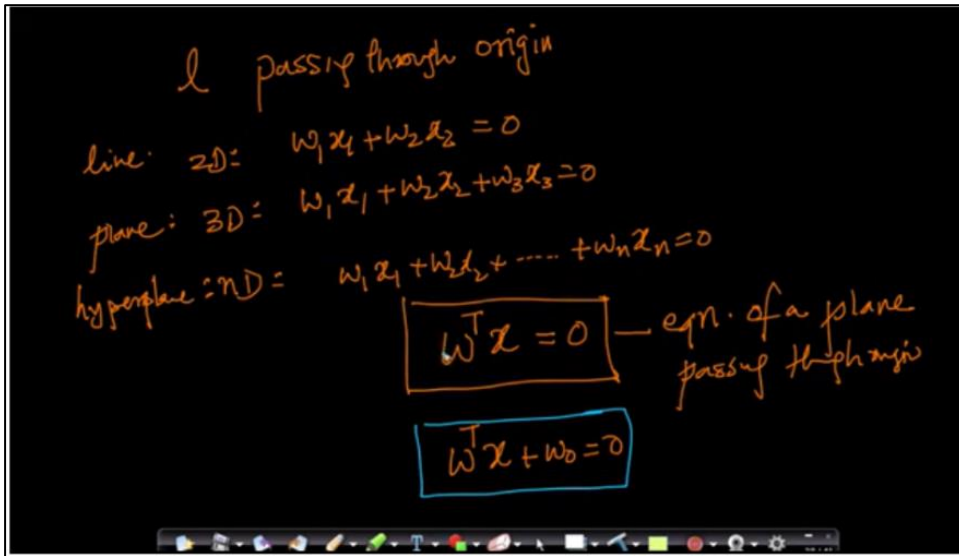 l passing through origin
line: 2D: w₁x₁ + w₂x₂ = 0
plane: 3D: w₁x₁ + w₂x₂ + w₃x₃ = 0
hyperplane: nD: w₁x₁ + w₂x₂ + ..... + wₙxₙ = 0
wᵀx = 0 — eqn. of a plane
passing through origin
wᵀx + w₀ = 0